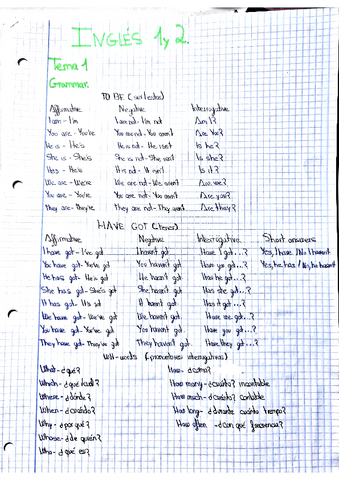 INGLÉS 1 y 2.
Tema 1
Grammar.
TO BE (ser/estar)
Affirmative Negative Interrogative
I am - I'm I am not - I'm not Am I?
You are - You're You are not - You aren't Are You?
He is - He's He is not - He isn't Is he?
She is - She's She is not - She isn't Is she?
It is - It's It is not - It isn't Is it?
We are - We're We are not - We aren't Are we?
You are - You're You are not - You aren't Are you?
They are - They're They are not - They aren't Are they?
HAVE GOT (Tener)
Affirmative Negative Interrogative Short answers
I have got - I've got I haven't got Have I got...? Yes, I have / No I haven't
You have got - You've got You haven't got Have you got...? Yes, he has / No, he hasn't
He has got - He's got He hasn't got Has he got...?
She has got - She's got She hasn't got Has she got...?
It has got - It's got It hasn't got Has it got...?
We have got - We've got We haven't got Have we got...?
You have got - You've got You haven't got Have you got...?
They have got - They've got They haven't got. Have they got...?
WH-words (pronombres interrogativos)
What - ¿qué? How - ¿cómo?
Which - ¿qué/cuál? How many - ¿cuánto? incontable
Where - ¿dónde? How much - ¿cuánto? contable
When - ¿cuándo? How long - ¿durante cuánto tiempo?
Why - ¿por qué? How often - ¿con qué frecuencia?
Whose - ¿de quién?
Who - ¿qué es?